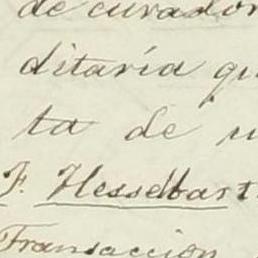 de curador
ditaría qu
ta de u
F. Hesselbart
Transaccion